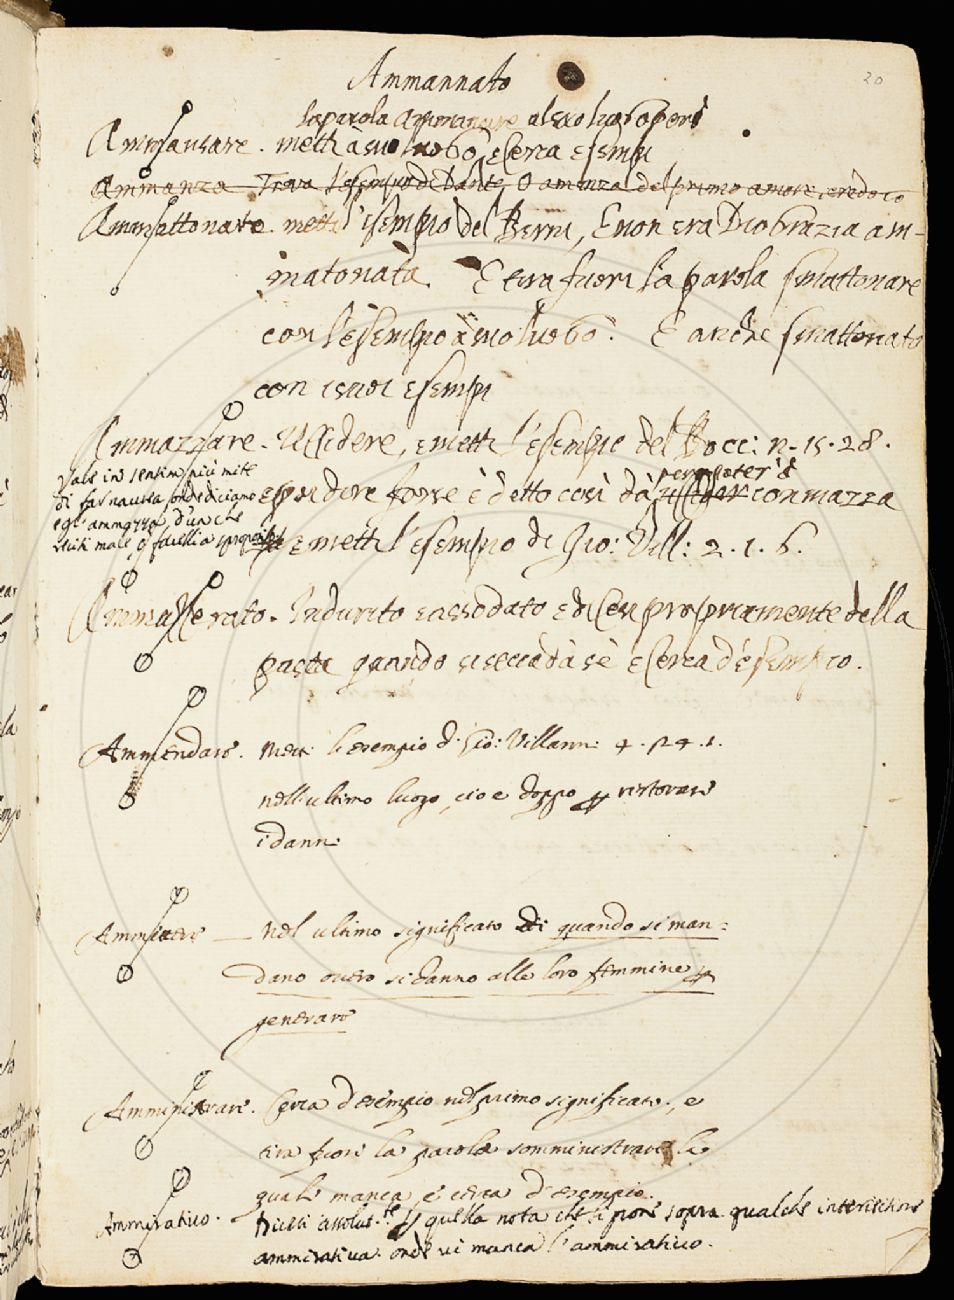 20
Ammannato
la parola ammannare al suo luogo però
Ammansare. metti à suo luogo, e cerca esempi
Ammanza Trova l'esempio di Dante, O amanza del primo amore, credo io
Ammattonato. metti l'esempio del Berni, E non era Dio grazia am-
matonata. E tira fuori la parola smattonare
con l'esempio à suo luogo. E anche smattonato
con i suoi esempi
Ammazzare. Uccidere, e metti l'esempio del Bocc: n. 15. 28.
Vale in sentim. più mite
di far nausea, onde diciamo
egl'ammazza d'un che
reciti male ò favelli a sproposito
percuoter'è
e per dire forse è detto così dà uccider con mazza
e metti l'esempio di Gio: Vill: 2. 1. 6.
Ammasserato. Indurito e assodato e dicesi propriamente della
pasta quando si secca dà sè e cerca d'esempio.
Ammendare. Metti l'esempio di Gio: Villani 4. 124. 1.
nell'ultimo luogo, cioè doppo p ristorare
i danni
Ammettere Nel ultimo significato di quando si man=
dano overo si danno alle loro femmine p
generare
Amministrare. Cerca d'esempio nel primo significato, e
tira fuori la parola somministrare la
quale manca e cerca d'esempio.
Ammirativo. Dicesi assolut.te p quella nota che si pone sopra qualche interiezione
ammirativa onde vi manca l'ammirativo.